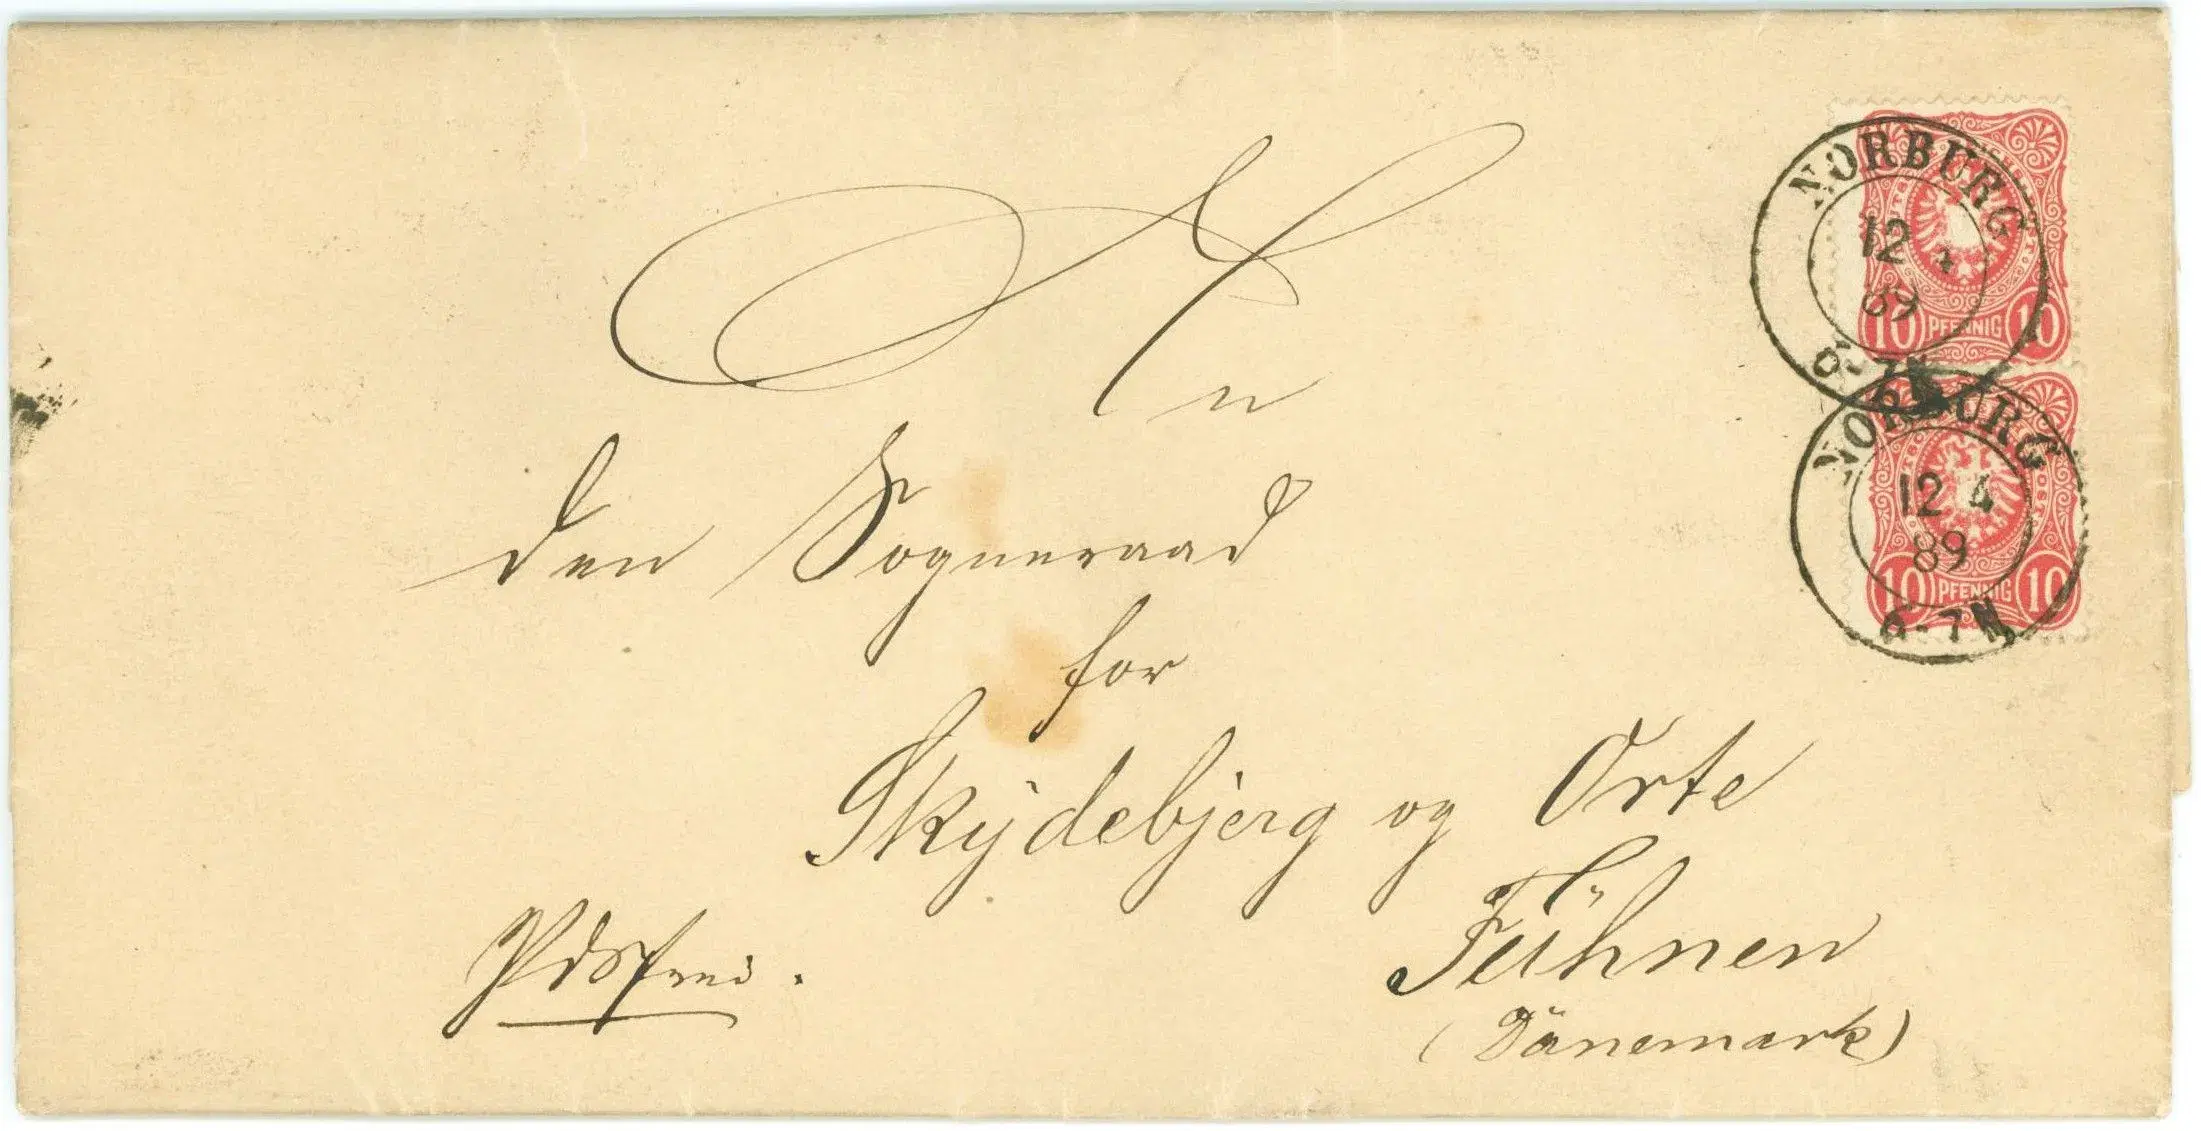 NORBURG
12 4
89
6-7N
10 PFENNIG 10
NORBURG
12 4
89
6-7N
10 PFENNIG 10
An
den Sogneraad
for
Skydebjerg og Orte
Fühnen
(Dänemark)